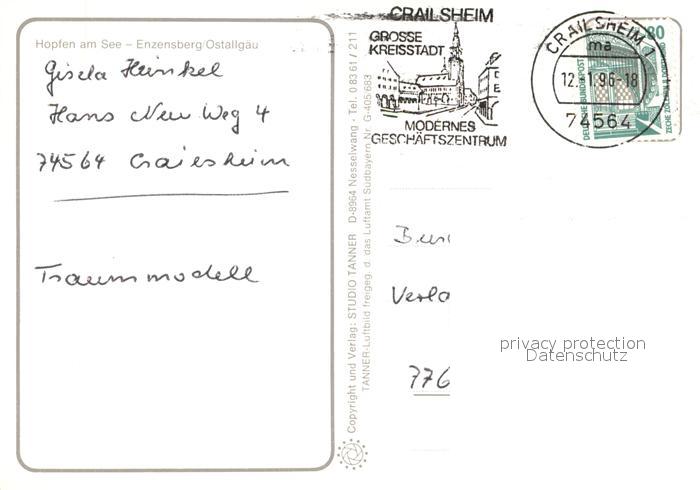 Hopfen am See – Enzensberg/Ostallgäu
Gisela Heinkel
Hans Neu Weg 4
74564 Craiesheim
Traummodell
Copyright und Verlag: STUDIO TANNER D-8964 Nesselwang - Tel. 0 83 61 / 211
TANNER-Luftbild freigeg. d. das Luftamt Südbayern Nr. G-405/683
CRAILSHEIM
GROSSE
KREISSTADT
MODERNES
GESCHÄFTSZENTRUM
CRAILSHEIM 1
ma
12.-1.96-18
74564
80
DEUTSCHE BUNDESPOST
ZECHE ZOLLERN II DORTMUND
Bur
Verla
776
privacy protection
Datenschutz